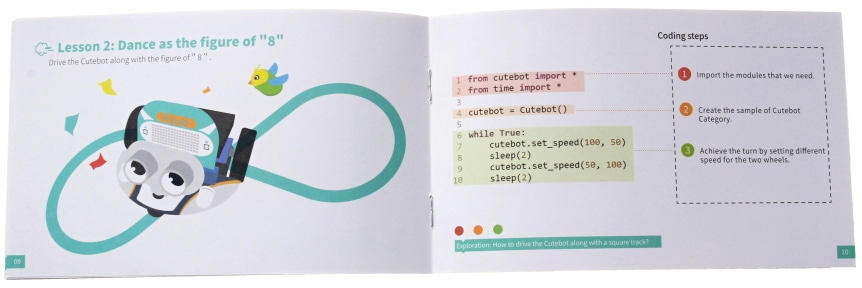 Lesson 2: Dance as the figure of "8"
Drive the Cutebot along with the figure of " 8 " .
09
Coding steps
1 from cutebot import *
2 from time import *
3
4 cutebot = Cutebot()
5
6 while True:
7 cutebot.set_speed(100, 50)
8 sleep(2)
9 cutebot.set_speed(50, 100)
10 sleep(2)
1 Import the modules that we need.
2 Create the sample of Cutebot
Category.
3 Achieve the turn by setting different
speed for the two wheels.
Exploration: How to drive the Cutebot along with a square track?
10